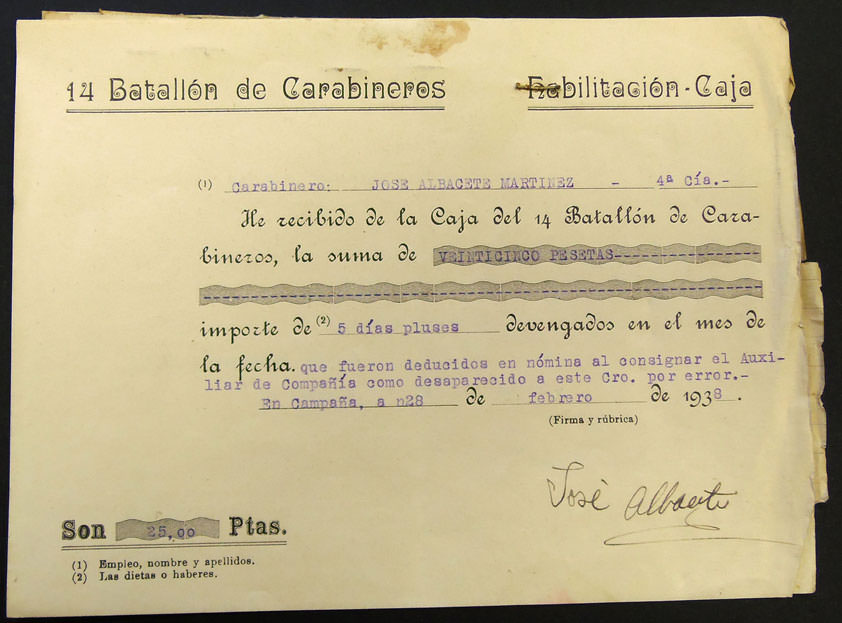 14 Batallón de Carabineros Habilitación-Caja
(1) Carabinero: JOSE ALBACETE MARTINEZ - 4ª Cía.-
He recibido de la Caja del 14 Batallón de Cara-
bineros, la suma de VEINTICINCO PESETAS
importe de (2) 5 días pluses devengados en el mes de
la fecha. que fueron deducidos en nómina al consignar el Auxi-
liar de Compañía como desaparecido a este Cro. por error.-
En Campaña, a n28 de febrero de 1938.
(Firma y rúbrica)
José Albacete
Son 25,00 Ptas.
(1) Empleo, nombre y apellidos.
(2) Las dietas o haberes.